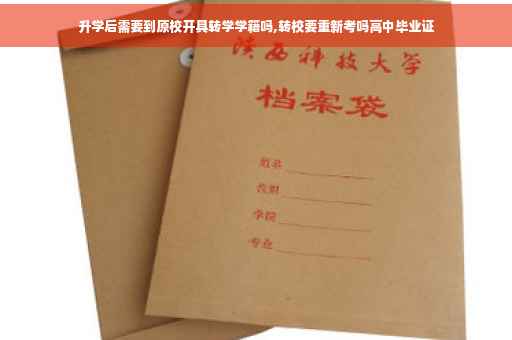 升学后需要到原校开具转学学籍吗,转校要重新考吗高中毕业证
陕西科技大学
档案袋
姓名
学院
专业